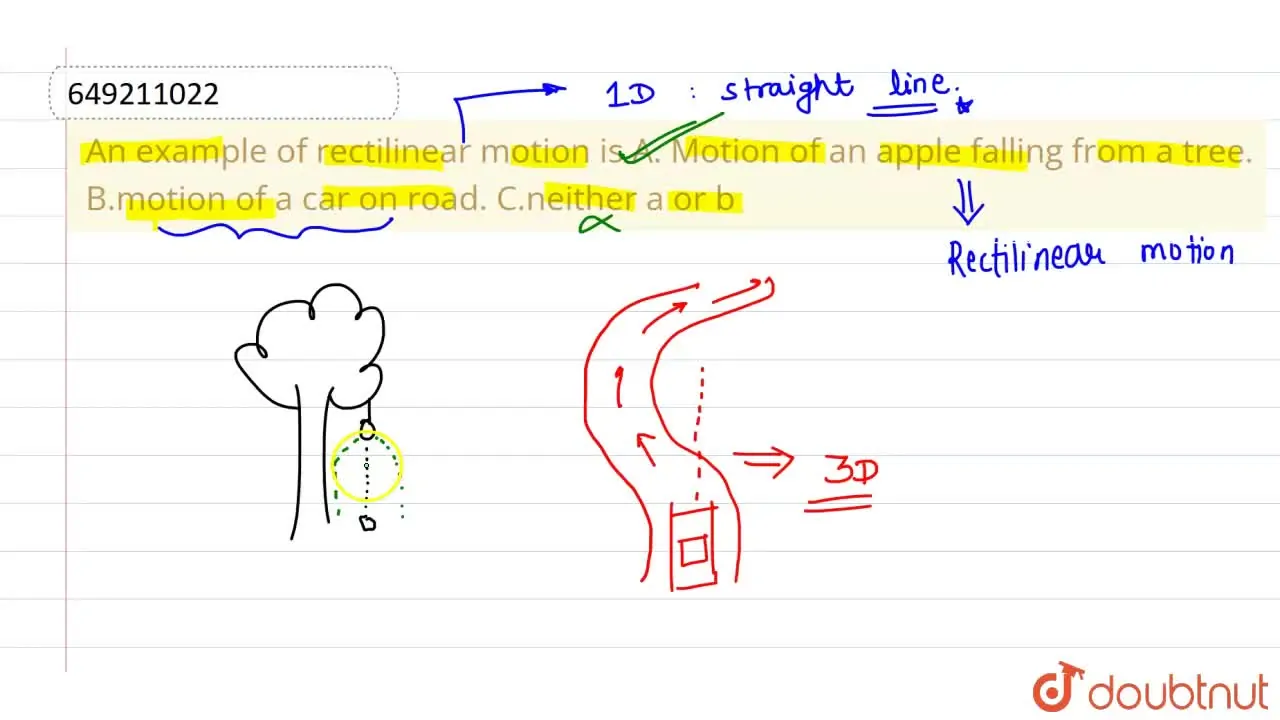 649211022
1D : straight line.
An example of rectilinear motion is A. Motion of an apple falling from a tree.
B.motion of a car on road. C.neither a or b
Rectilinear motion
3D
doubtnut